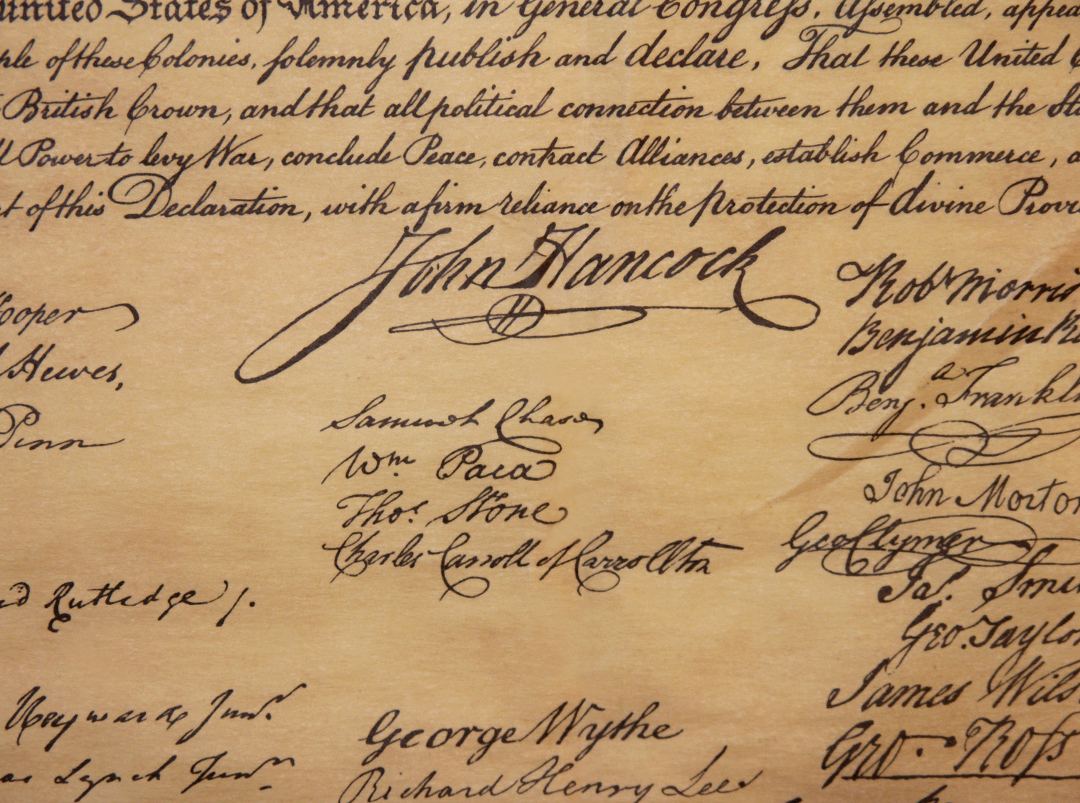 united States of America, in General Congress, Assembled, appea
ple of these Colonies, solemnly publish and declare, That these United C
British Crown, and that all political connection between them and the Sta
ll Power to levy War, conclude Peace, contract Alliances, establish Commerce, a
t of this Declaration, with a firm reliance on the protection of divine Provi
John Hancock
ooper
Hewes,
Penn
d Rutledge /.
Heyward Junr.
as Lynch Junr.
Samuel Chase
Wm Paca
Thos. Stone
Charles Carroll of Carrollton
George Wythe
Richard Henry Lee
Robt Morris
Benjamin Ru
Benja. Frankli
John Morton
Geo Clymer
Jas. Smi
Geo. Taylo
James Wils
Geo. Ross